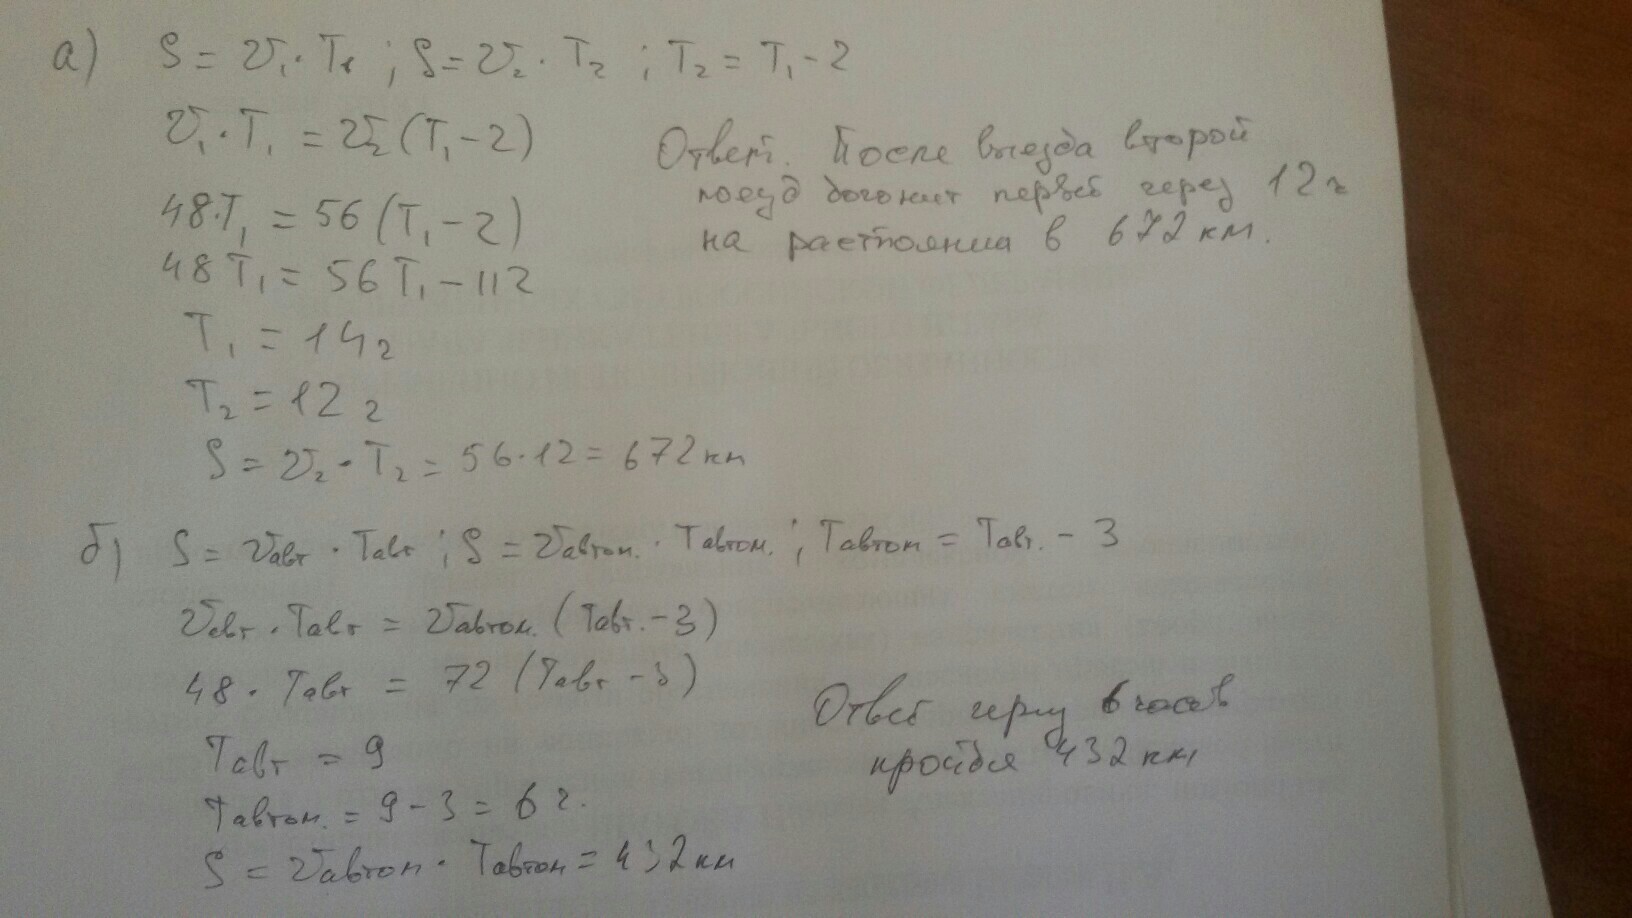 а) S = V₁ · T₁ ; S = V₂ · T₂ ; T₂ = T₁ - 2
V₁ · T₁ = V₂ (T₁ - 2)
48 · T₁ = 56 (T₁ - 2)
48 T₁ = 56 T₁ - 112
T₁ = 14 ч
T₂ = 12 ч
S = V₂ · T₂ = 56 · 12 = 672 км
Ответ. После выезда второй
поезд догонит первый через 12 ч
на расстоянии в 672 км.
б) S = Vавт · Tавт ; S = Vавтом. · Tавтом. ; Tавтом = Tавт. - 3
Vавт · Tавт = Vавтом. (Tавт. - 3)
48 · Tавт = 72 (Tавт - 3)
Tавт = 9
Tавтом. = 9 - 3 = 6 ч.
S = Vавтом · Tавтом = 432 км
Ответ через 6 часов
пройдя 432 км